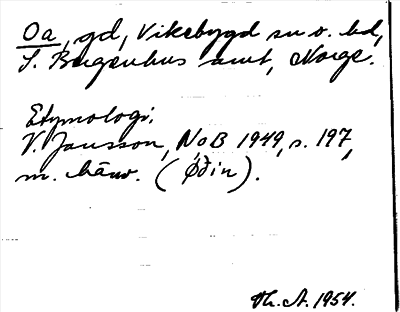 Oa, gd, Vikebygd sn o. hd,
S. Bergenhus amt, Norge.
Etymologi:
V. Jansson, NoB 1949, s. 197,
m. hänv. (Øðin).
Th. A. 1954.